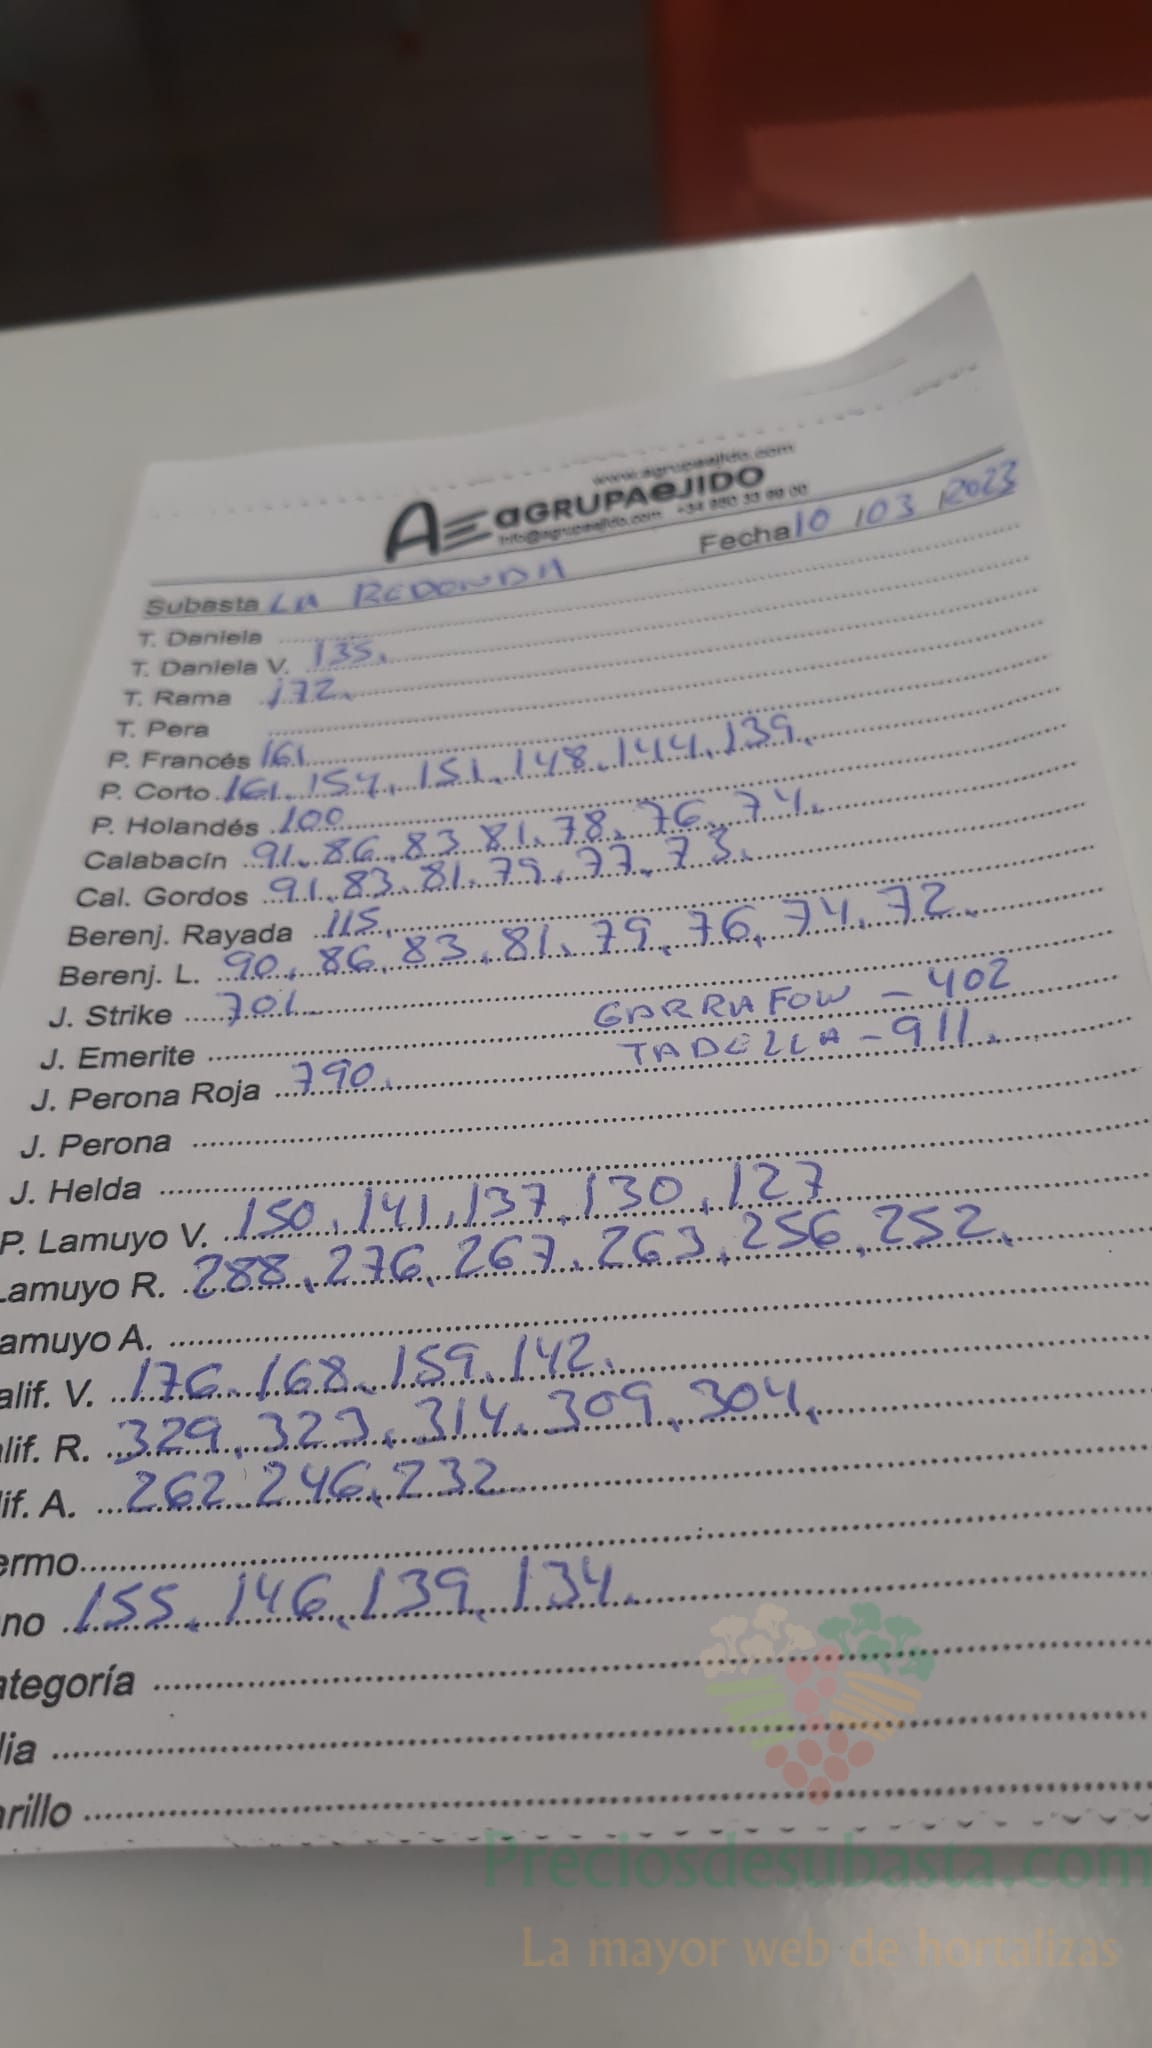 www.agrupaejido.com
AE aGRUPAeJIDO
info@agrupaejido.com +34 950 33 99 00
Fecha 10 /03 /2023
Subasta LA REDONDA
T. Daniela
T. Daniela V. 135.
T. Rama 172.
T. Pera
P. Francés 161
P. Corto 161. 154. 151. 148. 144. 139.
P. Holandés 100
Calabacín 91. 86. 83 81. 78. 76. 74.
Cal. Gordos 91. 83. 81. 79. 77. 73.
Berenj. Rayada 115.
Berenj. L. 90. 86. 83. 81. 79. 76. 74. 72.
J. Strike 701. GARRAFOW - 402
J. Emerite TABELLA - 911.
J. Perona Roja 790.
J. Perona
J. Helda
P. Lamuyo V. 150. 141. 137. 130. 127
Lamuyo R. 288. 276. 267. 263. 256. 252.
amuyo A.
alif. V. 176. 168. 159. 142.
lif. R. 329. 323. 314. 309. 304.
if. A. 262 246. 232
ermo
no 155. 146. 139. 134.
ategoría
lia
rillo
Preciosdesubasta.com
La mayor web de hortalizas